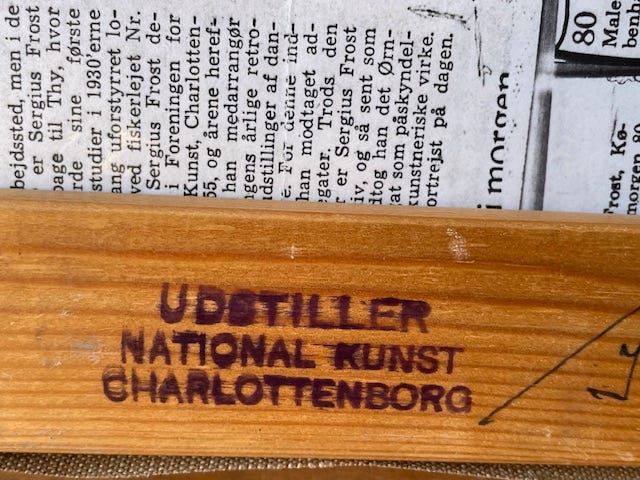 bejdssted, men i de
er Sergius Frost
page til Thy, hvor
rde sine første
studier i 1930'erne
ang uforstyrret lo-
ved fiskerlejet Nr.
Sergius Frost de-
i Foreningen for
Kunst, Charlotten-
55, og årene heref-
han medarrangør
ngens årlige retro-
udstillinger af dan-
e. For denne ind-
han modtaget ad-
gater. Trods den
r er Sergius Frost
iv, og så sent som
dtog han det Ørn-
at som påskyndel-
kunstneriske virke.
ortrejst på dagen.
i morgen
80
Male
Frost, Kø-
UDSTILLER
NATIONAL KUNST
CHARLOTTENBORG